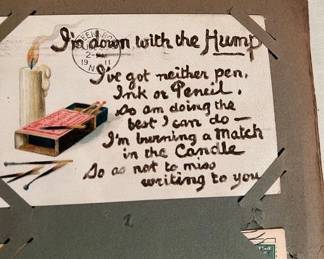 I'm down with the Hump
I've got neither pen,
Ink or Pencil,
So am doing the
best I can do —
I'm burning a match
in the Candle
So as not to miss
writing to you
2